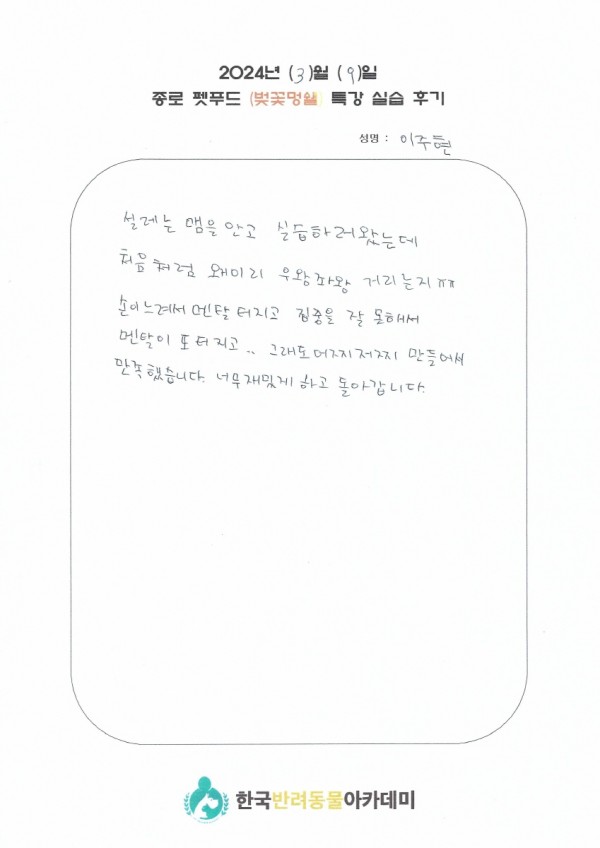 2024년 (3)월 (9)일
종로 펫푸드 (벚꽃멍쉘) 특강 실습 후기
성명 : 이주현
설레는 맴을 안고 실습하러왔는데
처음처럼 왜이리 우왕좌왕 거리는지ㅠㅠ
손이느려서 멘탈터지고 집중을 잘 못해서
멘탈이 또 터지고.. 그래도 어찌저찌 만들어서
만족했습니다. 너무재밌게 하고 돌아갑니다.
한국반려동물아카데미